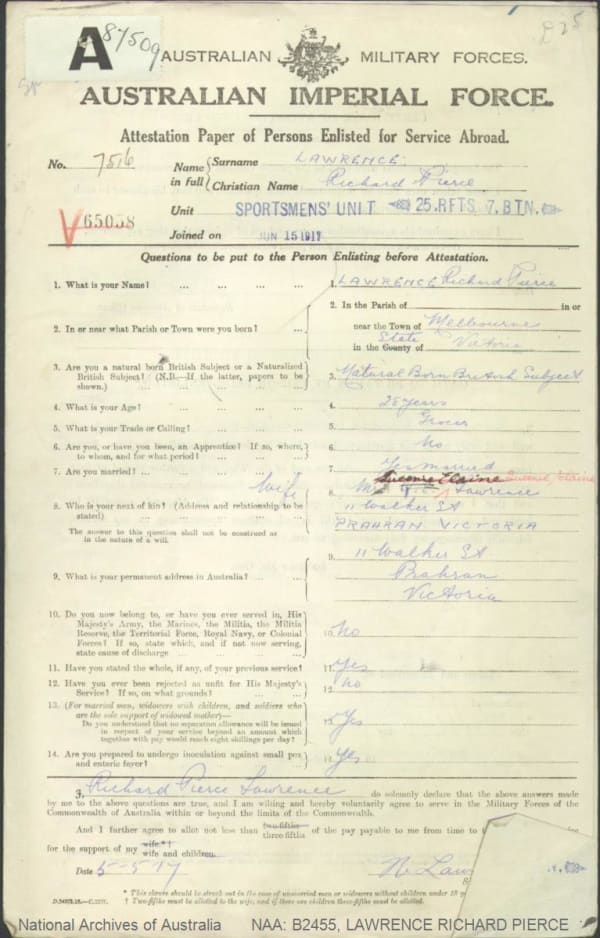 A 87509
AUSTRALIAN MILITARY FORCES.
AUSTRALIAN IMPERIAL FORCE.
Attestation Paper of Persons Enlisted for Service Abroad.
No. 7516
Name in full { Surname LAWRENCE
Christian Name Richard Pierce
65058
Unit SPORTSMENS' UNIT 25.RFTS. 7.BTN.
Joined on JUN 15 1917
Questions to be put to the Person Enlisting before Attestation.
1. What is your Name? ... ... ... ... 1. LAWRENCE Richard Pierce
2. In or near what Parish or Town were you born? ... 2. In the Parish of in or
near the Town of Melbourne
State
in the County of Victoria
3. Are you a natural born British Subject or a Naturalized British Subject? (N.B.—If the latter, papers to be shown.) 3. Natural Born British Subject
4. What is your Age? 4. 28 years
5. What is your Trade or Calling? 5. Grocer
6. Are you, or have you been, an Apprentice? If so, where, to whom, and for what period? 6. No
7. Are you married? 7. Yes married
wife
8. Who is your next of kin? (Address and relationship to be stated) 8. Lawrence
11 Walker St
PRAHRAN VICTORIA
The answer to this question shall not be construed as in the nature of a will.
9. What is your permanent address in Australia? 9. 11 Walker St
Prahran
Victoria
10. Do you now belong to, or have you ever served in, His Majesty's Army, the Marines, the Militia, the Militia Reserve, the Territorial Force, Royal Navy, or Colonial Forces? If so, state which, and if not now serving, state cause of discharge 10. No
11. Have you stated the whole, if any, of your previous service? 11. Yes
12. Have you ever been rejected as unfit for His Majesty's Service? If so, on what grounds? 12. No
13. (For married men, widowers with children, and soldiers who are the sole support of widowed mother)—
Do you understand that no separation allowance will be issued in respect of your service beyond an amount which together with pay would reach eight shillings per day? 13. Yes
14. Are you prepared to undergo inoculation against small pox and enteric fever? 14. Yes
I, Richard Pierce Lawrence do solemnly declare that the above answers made
by me to the above questions are true, and I am willing and hereby voluntarily agree to serve in the Military Forces of the
Commonwealth of Australia within or beyond the limits of the Commonwealth.
And I further agree to allot not less than two-fifths three fifths of the pay payable to me from time to
for the support of my wife*† wife and children.
Date 5-5-17
* This clause should be struck out in the case of unmarried men or widowers without children under 18
† Two-fifths must be allotted to the wife, and if there are children three-fifths must be allotted.
National Archives of Australia NAA: B2455, LAWRENCE RICHARD PIERCE